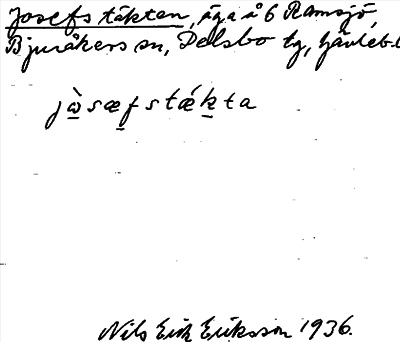 Josefs täkten, äga å 6 Ramsjö,
Bjuråkers sn, Delsbo tg, Gävleb.l
jὼsæf stǽkta
Nils Erik Eriksson 1936.